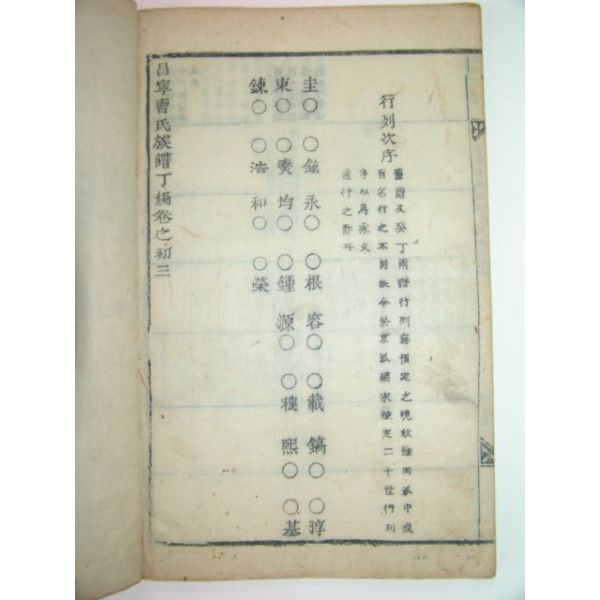 行列次序
舊譜及癸丁兩譜行列無預定之規故雖同派中或
有名行之不同故今於京派編末議定二十世行列
字以爲永久
遵行之計耳
圭○ ○鉉 永○ ○根 容○ ○載 鎬○ ○淳
東○ ○燮 均○ ○鍾 源○ ○穆 熙○ ○基
錬○ ○浩 和○ ○榮
昌寧曺氏族譜丁編卷之初 三